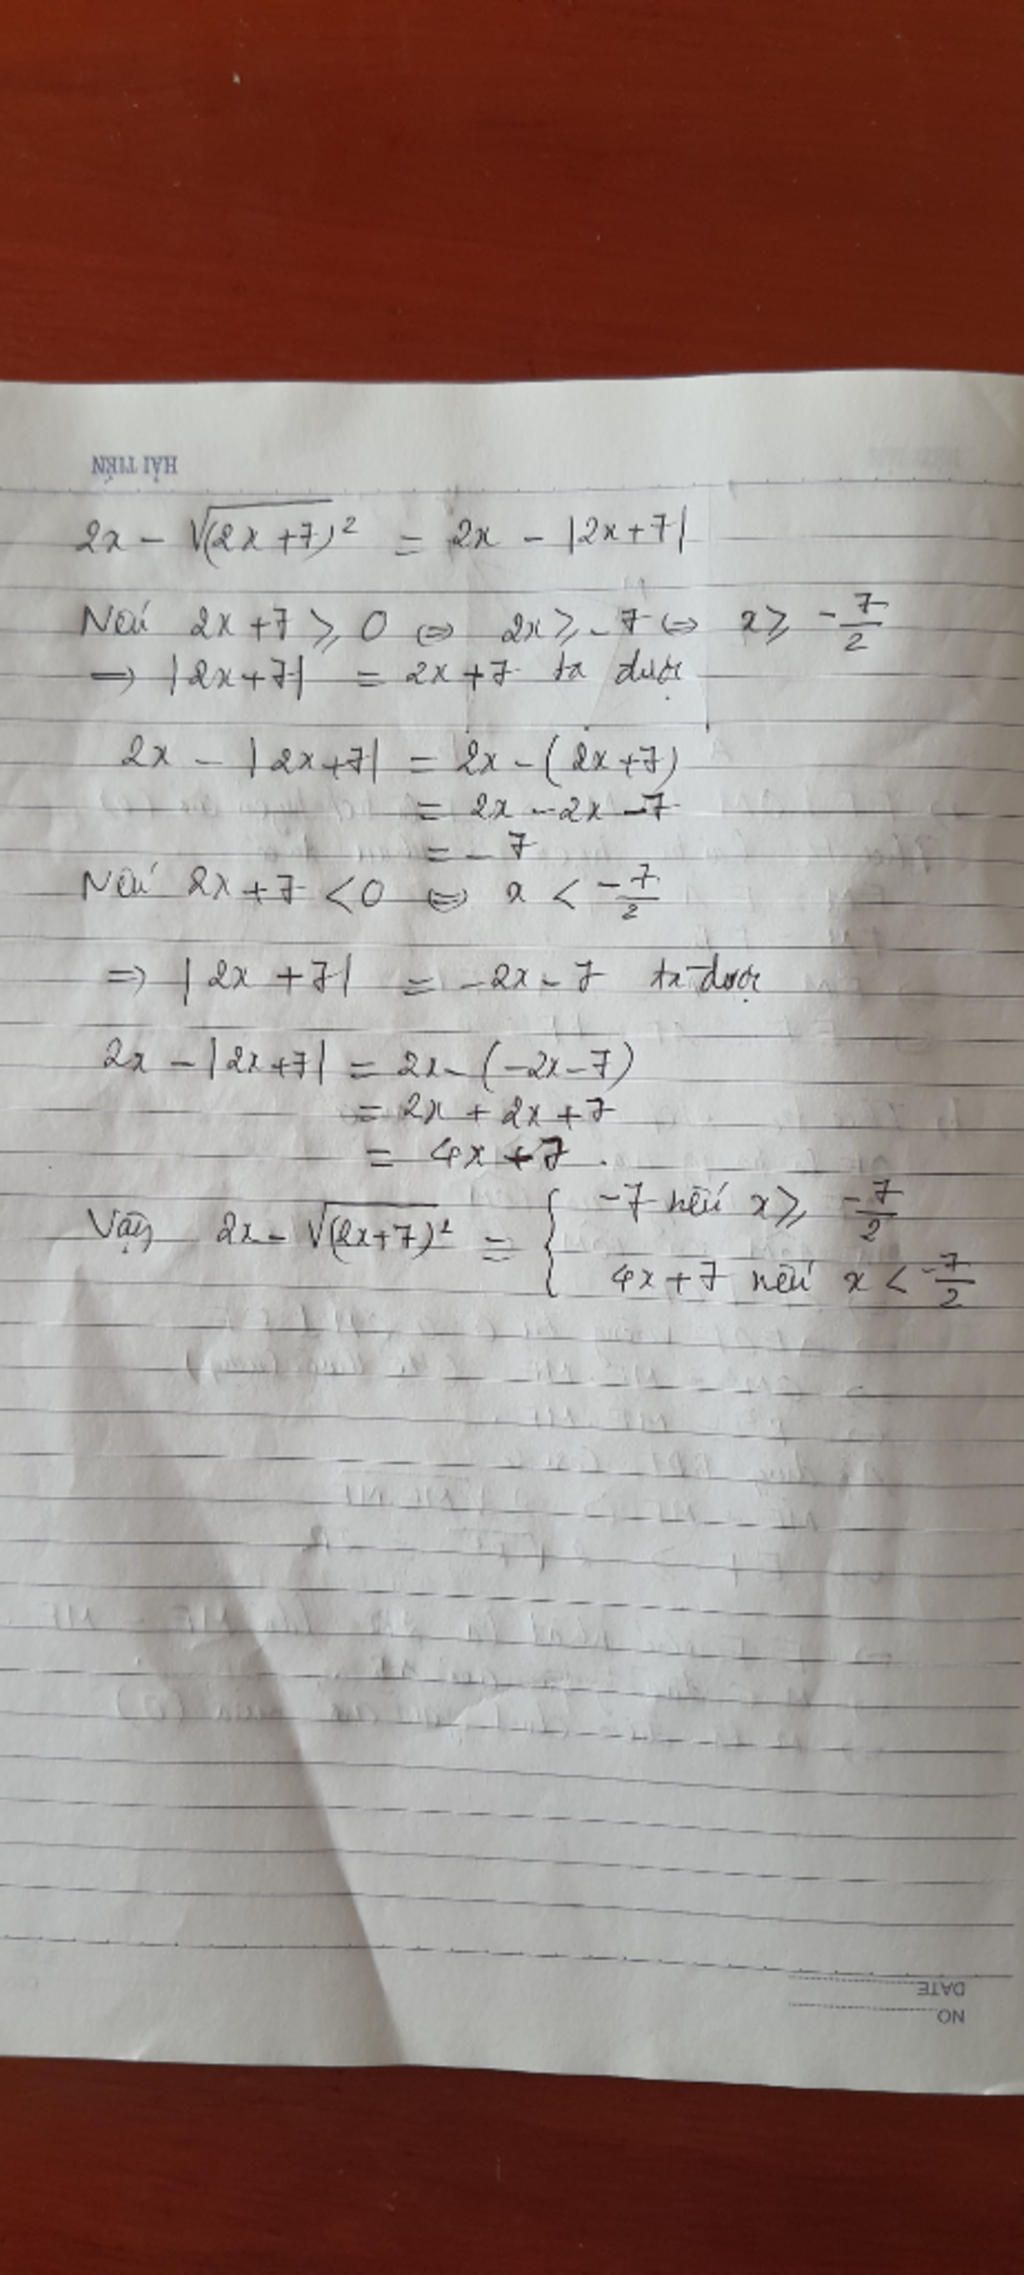 HẢI TIẾN
2x - √(2x+7)² = 2x - |2x+7|
Nếu 2x+7 ⩾ 0 ⇔ 2x ⩾ -7 ⇔ x ⩾ -7/2
⇒ |2x+7| = 2x+7 ta được
2x - |2x+7| = 2x - (2x+7)
= 2x - 2x - 7
= -7
Nếu 2x+7 < 0 ⇔ x < -7/2
⇒ |2x+7| = -2x-7 ta được
2x - |2x+7| = 2x - (-2x-7)
= 2x + 2x + 7
= 4x + 7 .
Vậy 2x - √(2x+7)² = { -7 nếu x ⩾ -7/2
4x+7 nếu x < -7/2
DATE
NO